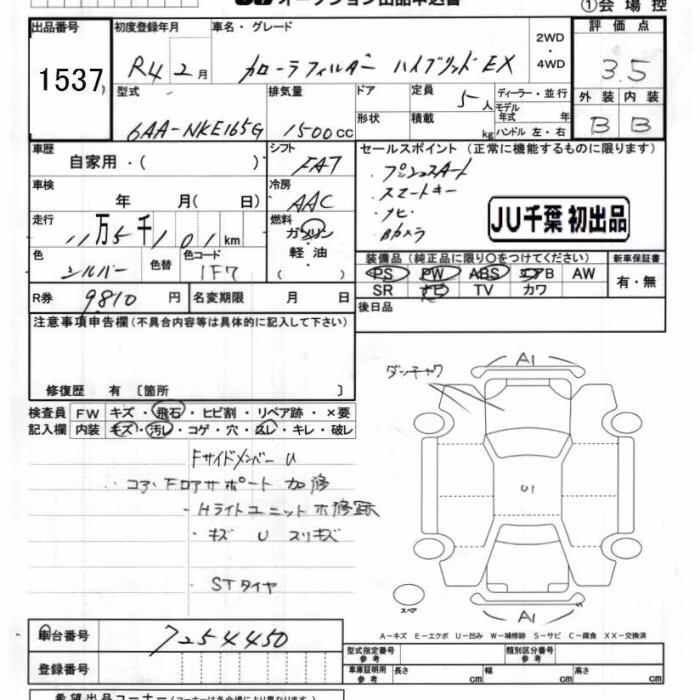 オークション出品申込書
①会場控
出品番号
1537
初度登録年月
R4 2月
車名・グレード
カローラフィルダー ハイブリッド EX
2WD
・
4WD
評価点
3.5
型式
6AA-NKE165G
排気量
1500cc
ドア
形状
定員
5人
積載
kg
ディーラー・並行
モデル年式 年
ハンドル 左・右
外装 内装
B B
車歴
自家用・( )
シフト
FAT
車検
年 月( 日)
冷房
AAC
走行
11万5千101km
燃料
ガソリン
・
軽油
( )
色
シルバー
色替
色コード
1F7
R券
9810円
名変期限 月 日
セールスポイント (正常に機能するものに限ります)
・プッシュスタート
・スマートキー
・ナビ
・Bカメラ
JU千葉 初出品
装備品 (純正品に限り○をつけてください)
PS PW ABS エアB AW
SR ナビ TV カワ
新車保証書
有・無
後日品
注意事項申告欄(不具合内容等は具体的に記入して下さい)
修復歴 有 〔箇所 〕
検査員
記入欄
FW キズ・飛石・ヒビ割・リペア跡・×要
内装 キズ・汚レ・コゲ・穴・スレ・キレ・破レ
FサイドメンバーU
・コアFロアサポート加修
・Hライトユニットホ修跡
・キズ U スリキズ
・STタイヤ
ダッチャワ
A1
U1
スペア
A1
A-キズ E-エクボ U-凹み W-補修跡 S-サビ C-腐食 XX-交換済
車台番号
7254450
登録番号
型式指定番号
参考
類別区分番号
参考
車庫証明用
参考
長さ cm 幅 cm 高さ cm
希望出品コーナー